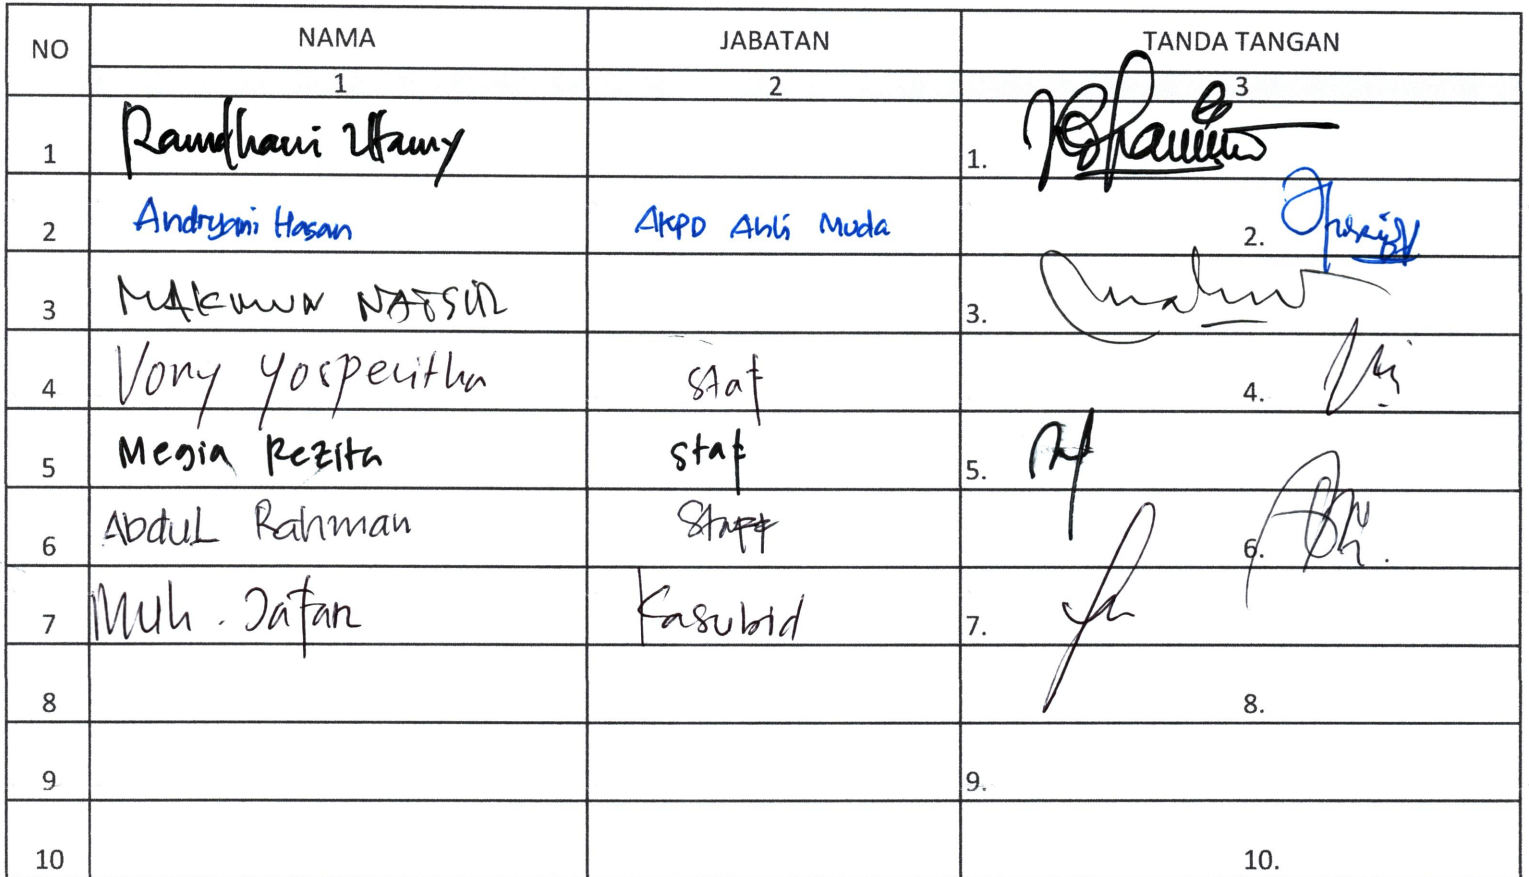 NO NAMA JABATAN TANDA TANGAN
1 2 3
1 Ramdhani Utamy 1.
2 Andryani Hasan AKPD Ahli Muda 2.
3 MAKMUN NATSIR 3.
4 Vony Yosperitha staf 4.
5 Megia Rezita staf 5.
6 Abdul Rahman Staff 6.
7 Muh. Jafar Kasubid 7.
8 8.
9 9.
10 10.